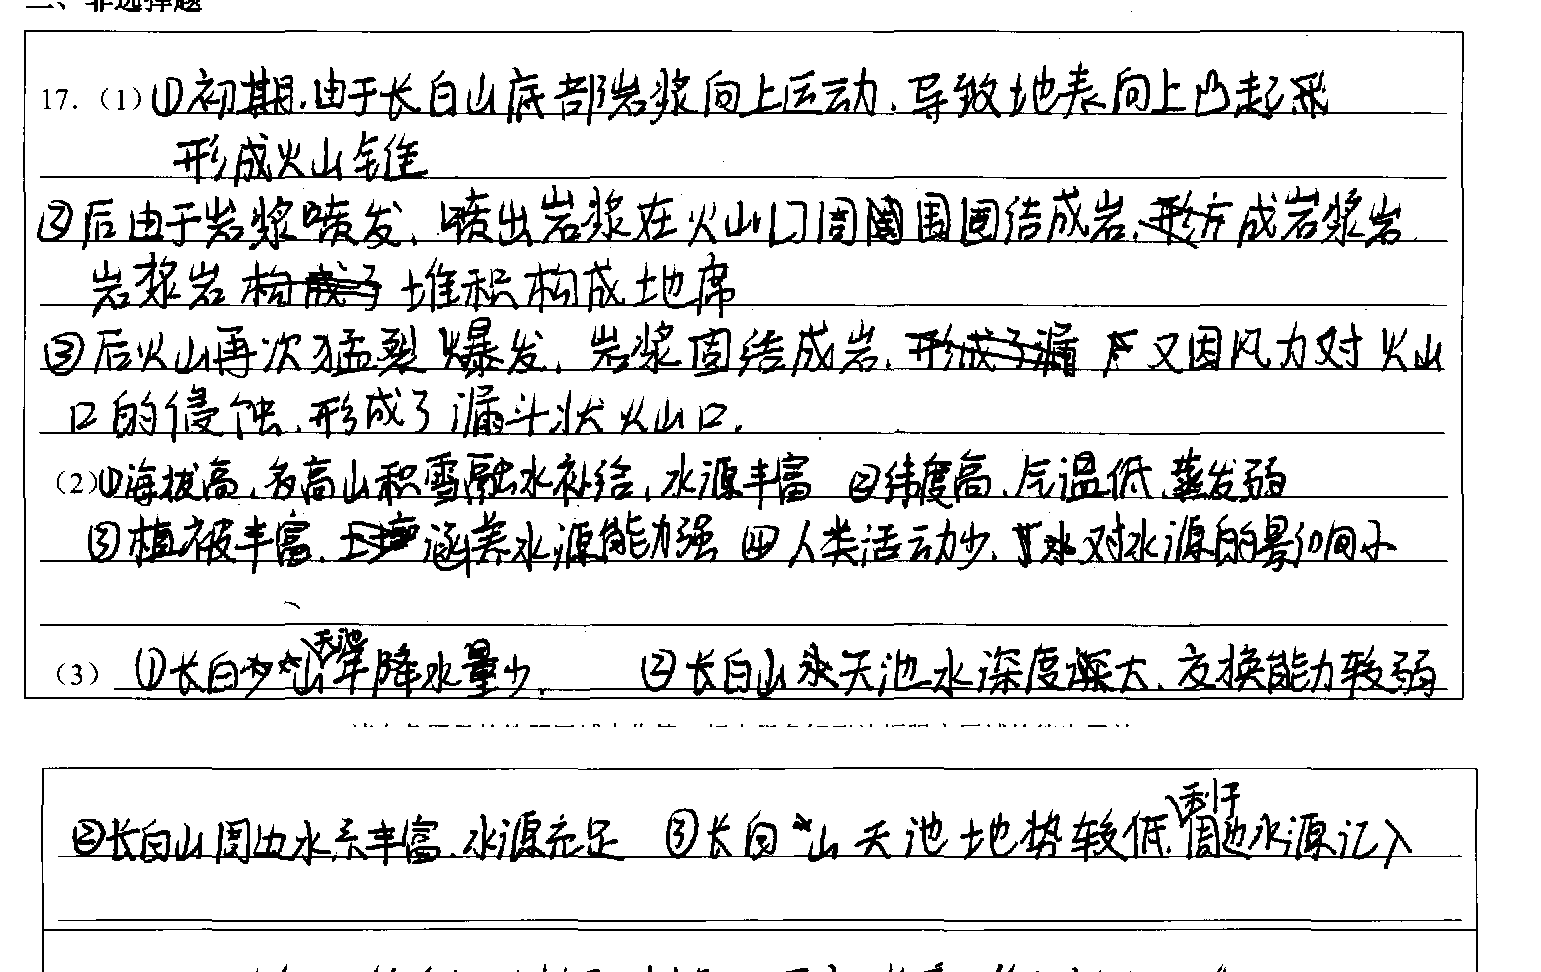 二、非选择题
17.（1）①初期,由于长白山底部岩浆向上运动,导致地表向上凸起形
形成火山锥
②后由于岩浆喷发,喷出岩浆在火山口周围固结成岩,成岩浆岩
岩浆岩堆积构成地席
③后火山再次猛裂爆发,岩浆固结成岩,又因风力对火山
口的侵蚀,形成了漏斗状火山口.
（2）①海拔高,多高山积雪融水补给,水源丰富 ②纬度高,气温低,蒸发弱
③植被丰富,涵养水源能力强 ④人类活动少,对水源的影响小
（3）①长白山天池年降水量少. ②长白山天池水深度大,交换能力较弱
②长白山周边水系丰富,水源充足 ③长白山天池地势较低,利于周边水源汇入